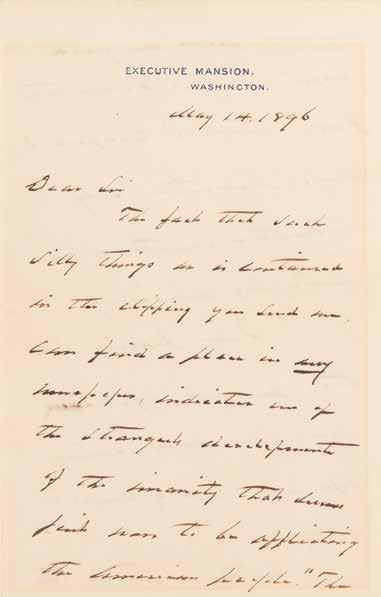 EXECUTIVE MANSION,
WASHINGTON.
May 14. 1896
Dear Sir
The fact that such
silly things as is contained
in the clipping you send me,
can find a place in any
newspaper, indicates one of
the strangest developments
of the insanity that seems
just now to be afflicting
the American people. "The